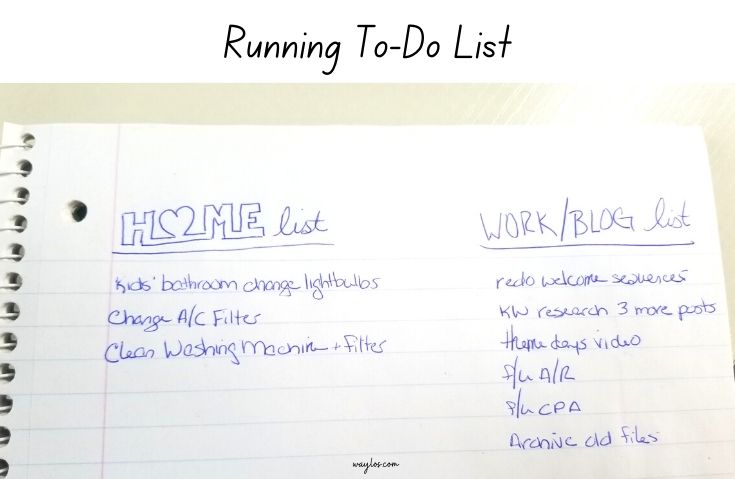 Running To-Do List
HOME list
Kids' bathroom change lightbulbs
Change A/C Filter
Clean Washing Machine + filter
WORK/BLOG list
redo welcome sequences
KW research 3 more posts
theme days video
f/u A/R
f/u CPA
Archive old files
waylos.com